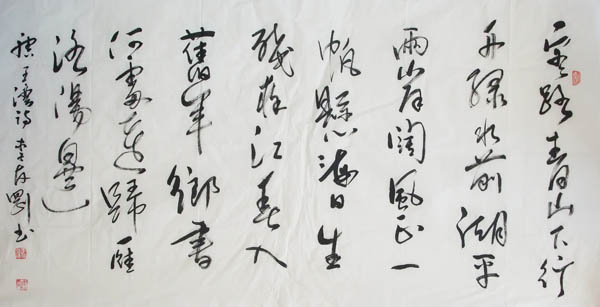 客路青山下行
舟綠水前潮平
兩岸闊風正一
帆懸海日生
殘夜江春入
舊年鄉書
何處達歸雁
洛陽邊
王灣詩 李存剛書